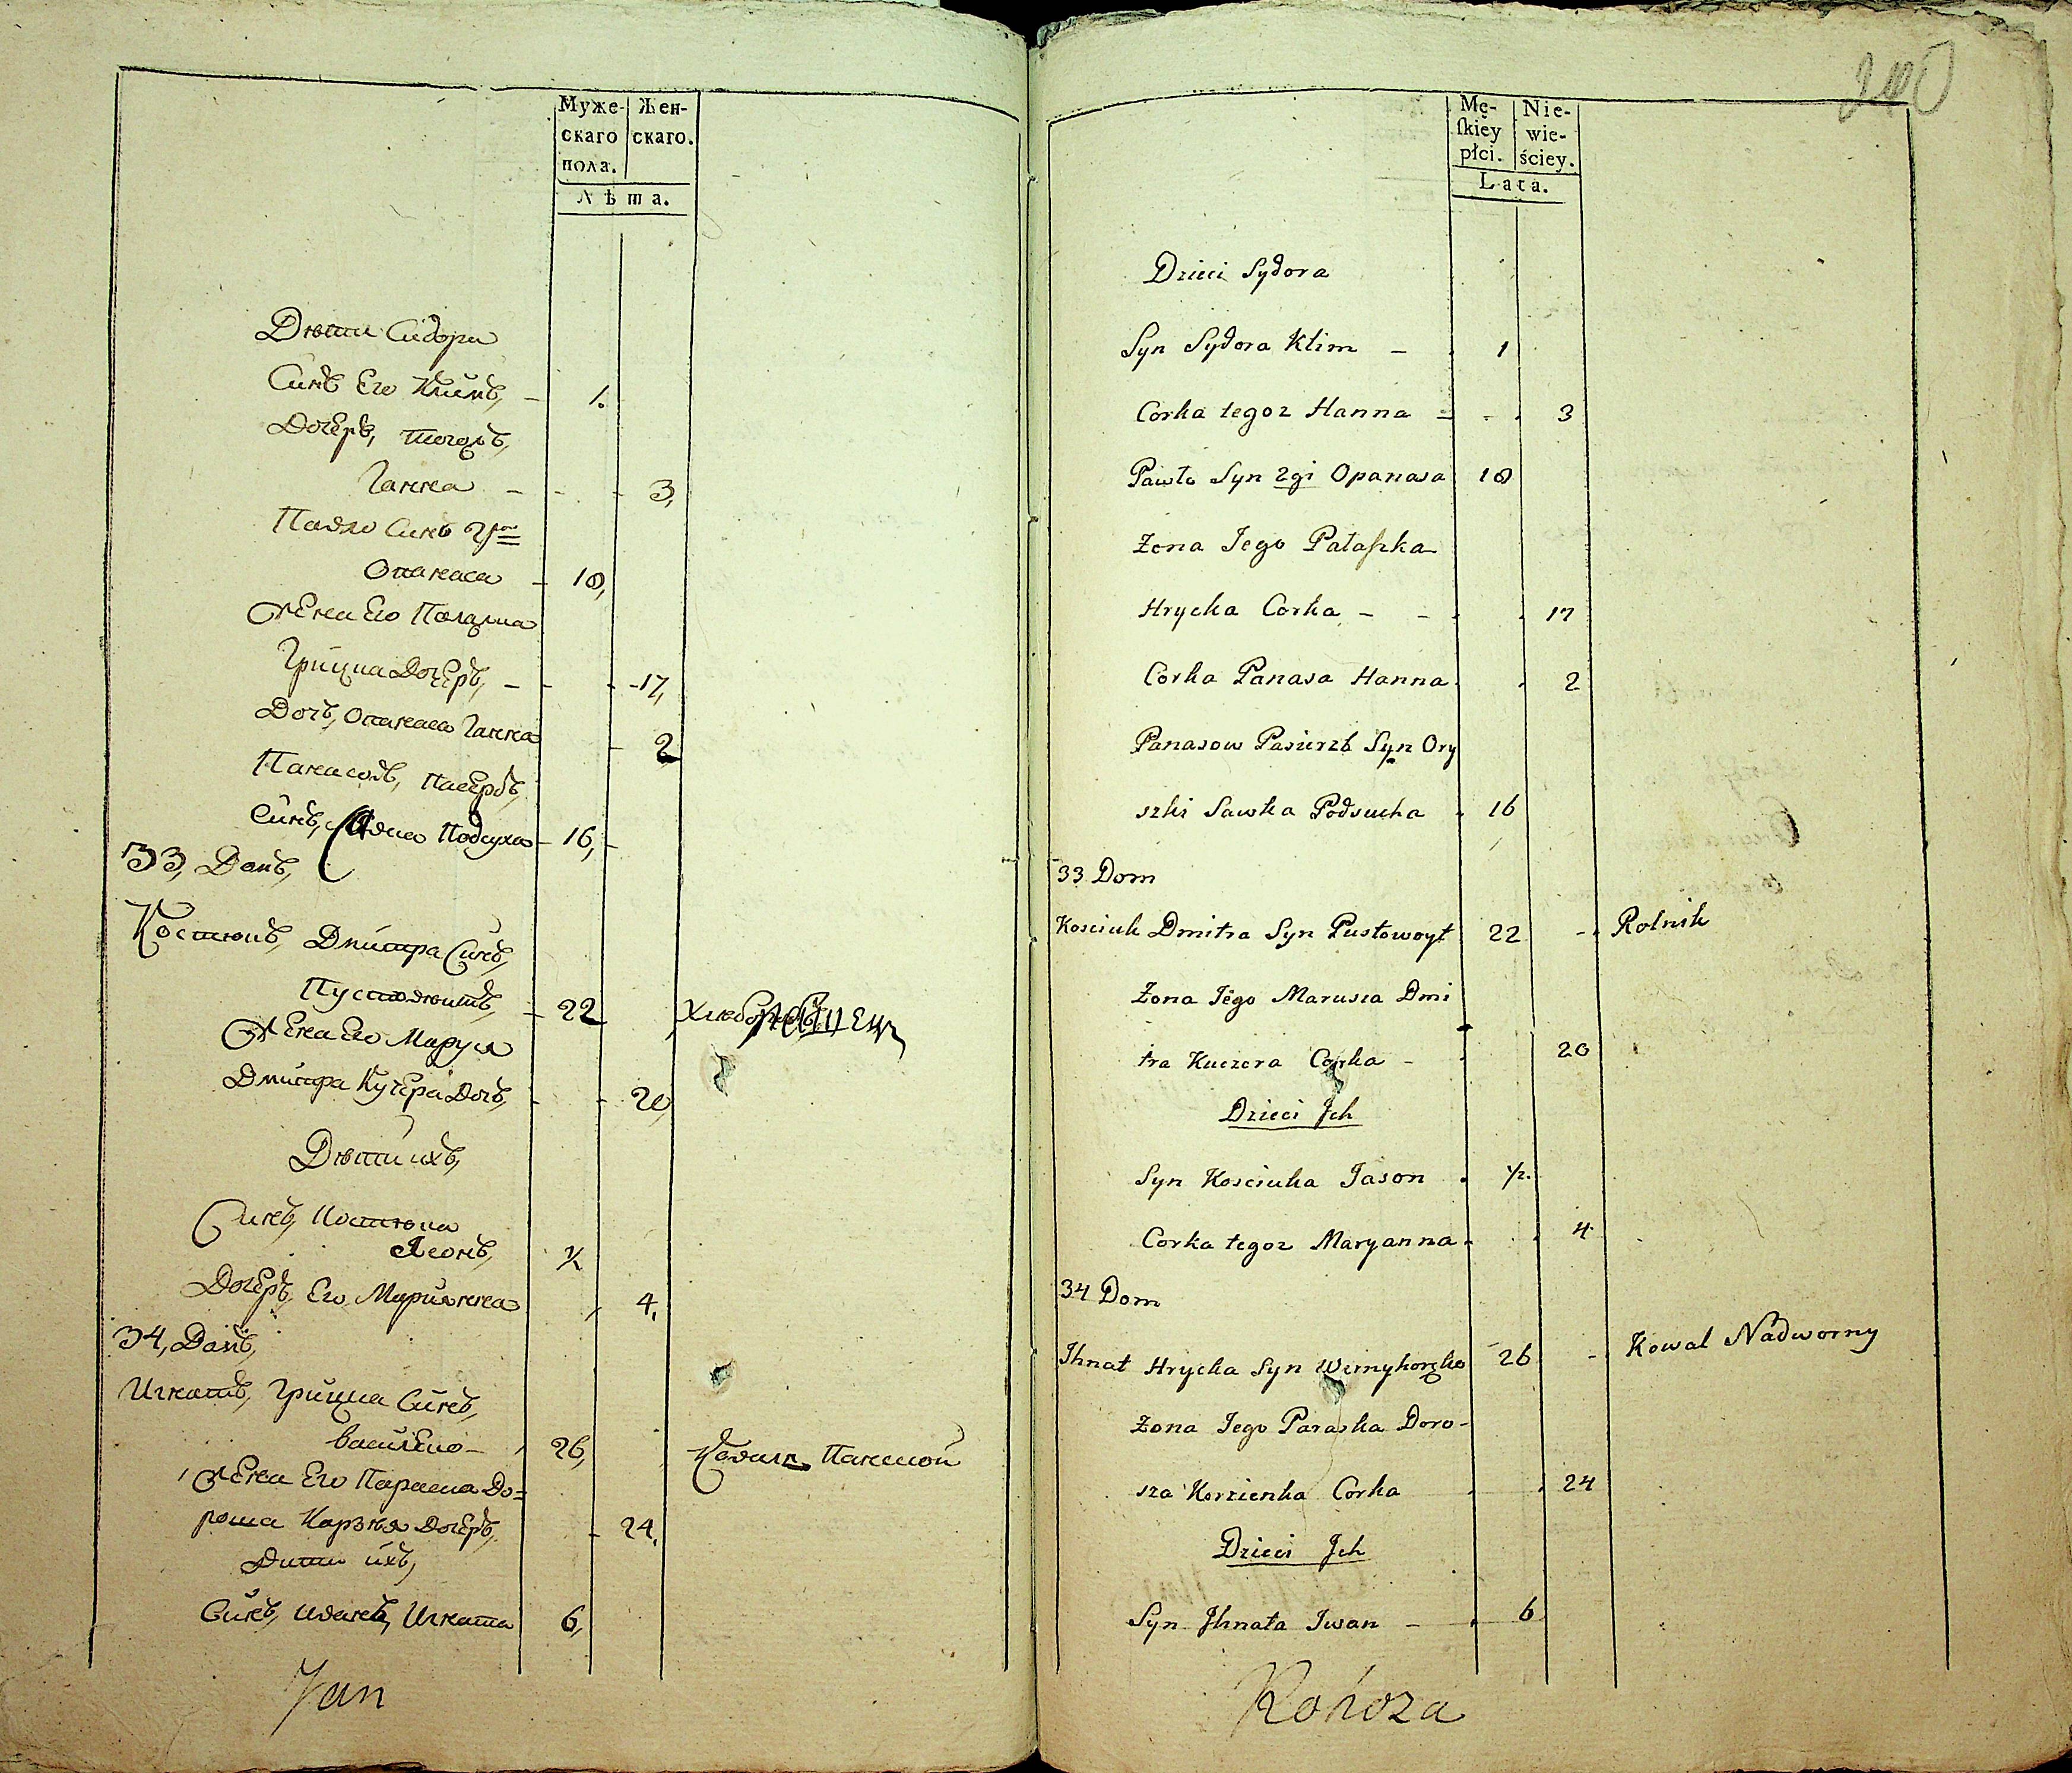 Муже-
скаго
пола.
Жен-
скаго.
Лѣта.
Дѣти Сидора
Синъ Его Климъ, – 1.
Дочеръ, тогожъ,
Ганна – – – 3,
Павло Синъ 2гой
Опанаса – 18,
Жена Его Палажка
Грицка Дочеръ, – – – 17,
Дочъ, Опанаса Ганна – 2
Панасовъ, Пасербъ,
Синъ, Савка Подсуха – 16,
33, Домъ,
Костюкъ, Дмитра Синъ,
Пустовоитъ, – 22
Жена Его Маруся
Дмитра Кучера Дочъ, – – 20,
Дѣти ихъ,
Синъ, Костюка
Ясонъ, ½
Дочеръ, Его Мариянна 4,
34, Домъ,
Игнатъ, Грицка Синъ,
26, Коваль Панской
Жена Его Параска До=
роша Дочеръ, – 24,
Дити ихъ,
Синъ, Иванъ, Игната 6,
Jan
240
Mę-
ſkiey
płci.
Nie-
wie-
ściey.
Lata.
Dzieci Sydora
Syn Sydora Klim – 1
Corka tegoz Hanna – 3
Pawło Syn 2gi Opanasa 18
Zona Jego Pałaſzka
Hrycka Corka – – 17
Corka Panasa Hanna 2
Panasow Pasierzb Syn Ory
szki Sawka Podsucha 16
33 Dom
Kosciuk Dmitra Syn Pustowoyt 22 – Rolnik
Zona Jego Marusia Dmi
tra Kuczera Corka – 20
Dzieci Jch
Syn Kosciuka Jason ½.
Corka tegoz Maryanna 4
34 Dom
Jhnat Hrycka Syn 26 – Kowal Nadworny
Zona Jego Paraska Doro-
sza Korzienka Corka 24
Dzieci Jch
Syn Jhnata Iwan – 6
Rohoza